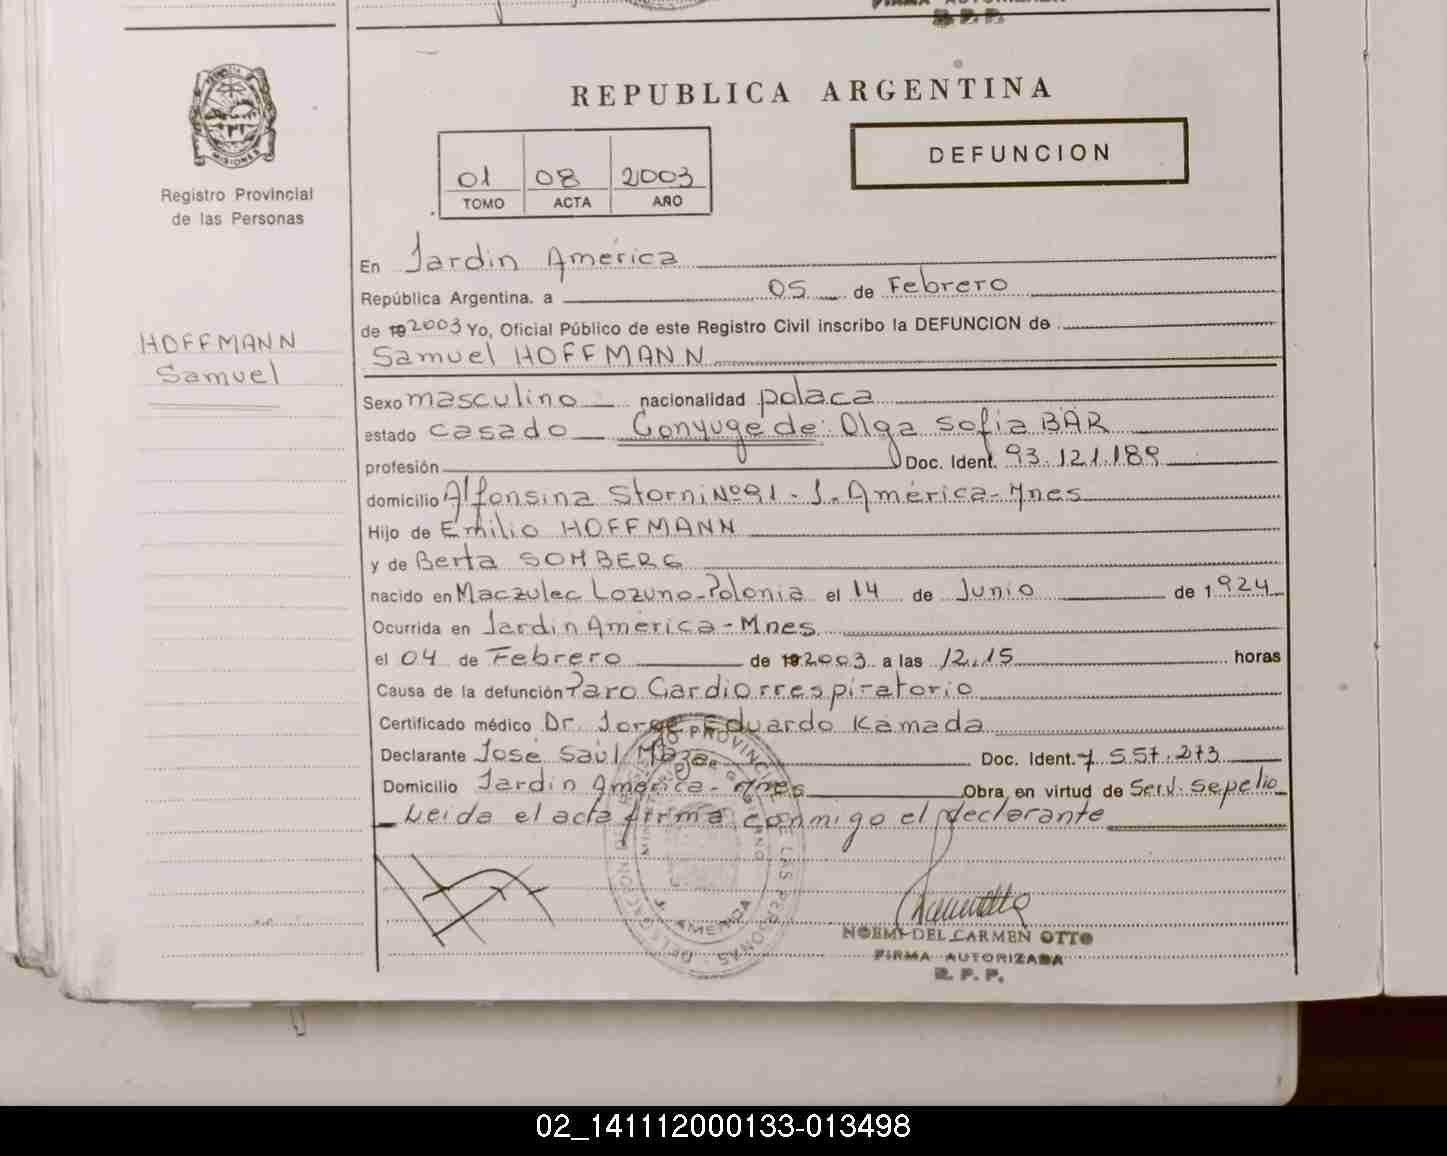 FIRMA AUTORIZADA
R. P. P.
PROVINCIA DE
MISIONES
Registro Provincial
de las Personas
HOFFMANN
Samuel
REPUBLICA ARGENTINA
01 08 2003
TOMO ACTA AÑO
DEFUNCION
En Jardin América
República Argentina, a 05 de Febrero
de 19 2003 Yo, Oficial Público de este Registro Civil inscribo la DEFUNCION de
Samuel HOFFMANN
Sexo masculino nacionalidad polaca
estado casado Conyuge de: Olga Sofia BÄR
profesión Doc. Ident. 93.121.189
domicilio Alfonsina Storni Nº 91 - J. América - Mnes
Hijo de Emilio HOFFMANN
y de Berta SOMBERG
nacido en Maczulec Lozuno - Polonia el 14 de Junio de 1924
Ocurrida en Jardin América - Mnes
el 04 de Febrero de 19 2003 a las 12,15 horas
Causa de la defunción Paro Cardiorrespiratorio
Certificado médico Dr. Jorge Eduardo Kamada
Declarante José Saúl Maza Doc. Ident. 7.557.273
Domicilio Jardin América - Mnes Obra en virtud de Serv. Sepelio
Leida el acta firma conmigo el declarante
DELEGACION REGISTRO PROVINCIAL DE LAS PERSONAS
MINISTERIO DE GOBIERNO
J. AMERICA
NOEMI DEL CARMEN OTTO
FIRMA AUTORIZADA
R. P. P.
02_141112000133-013498